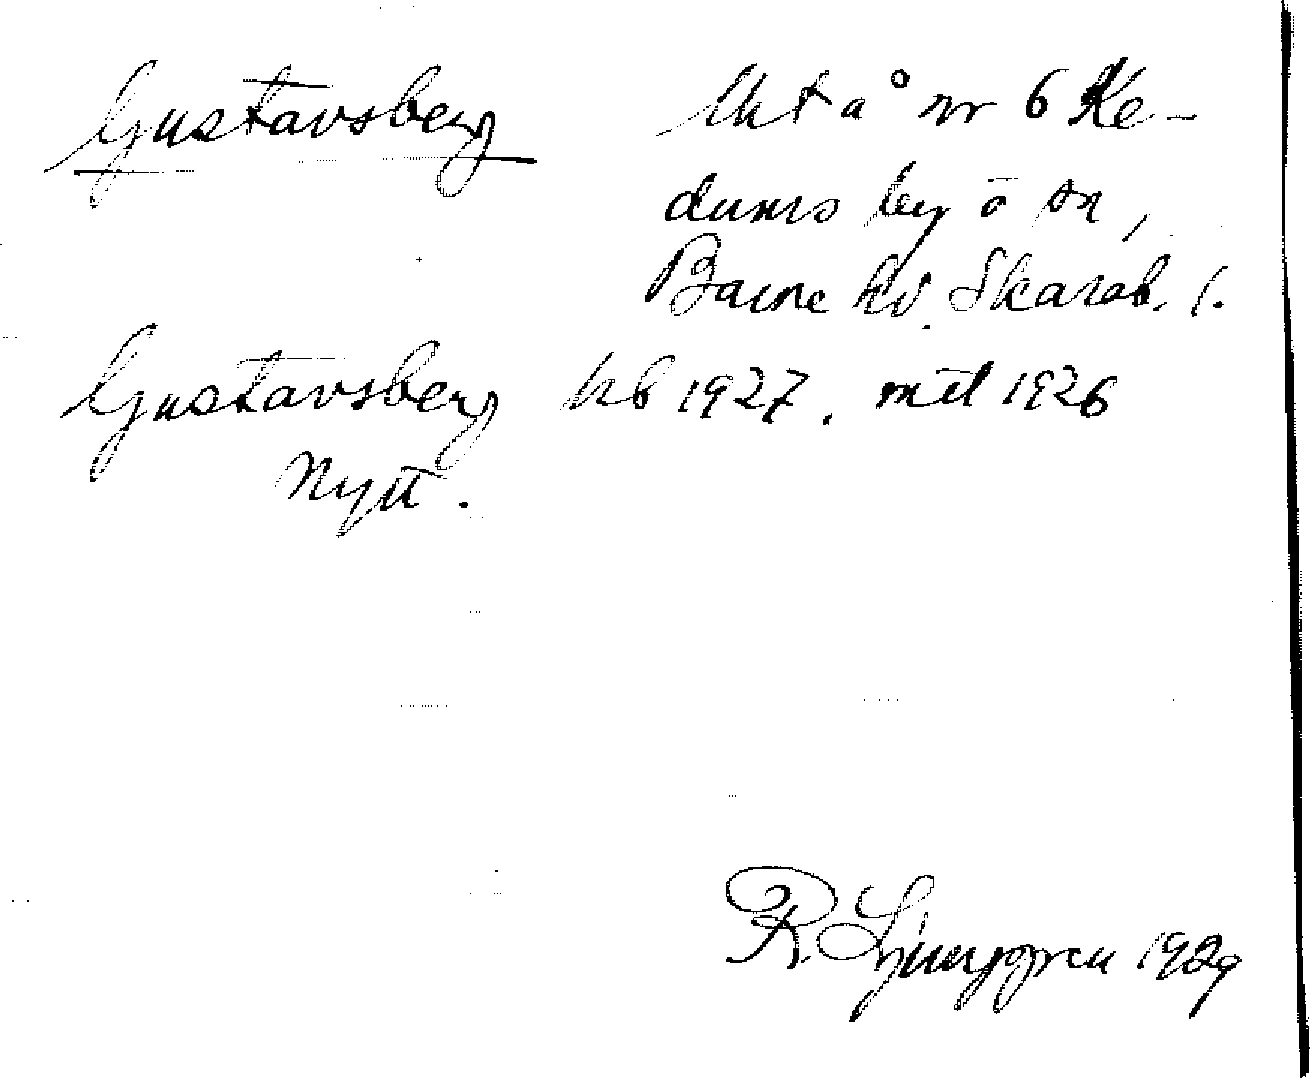 Gustavsberg Uht å nr 6 Ke-
dums by o sn,
Barne hd. Skarab. l.
Gustavsberg kb 1927. mtl 1926
Nytt.
R. Ljunggren 1929